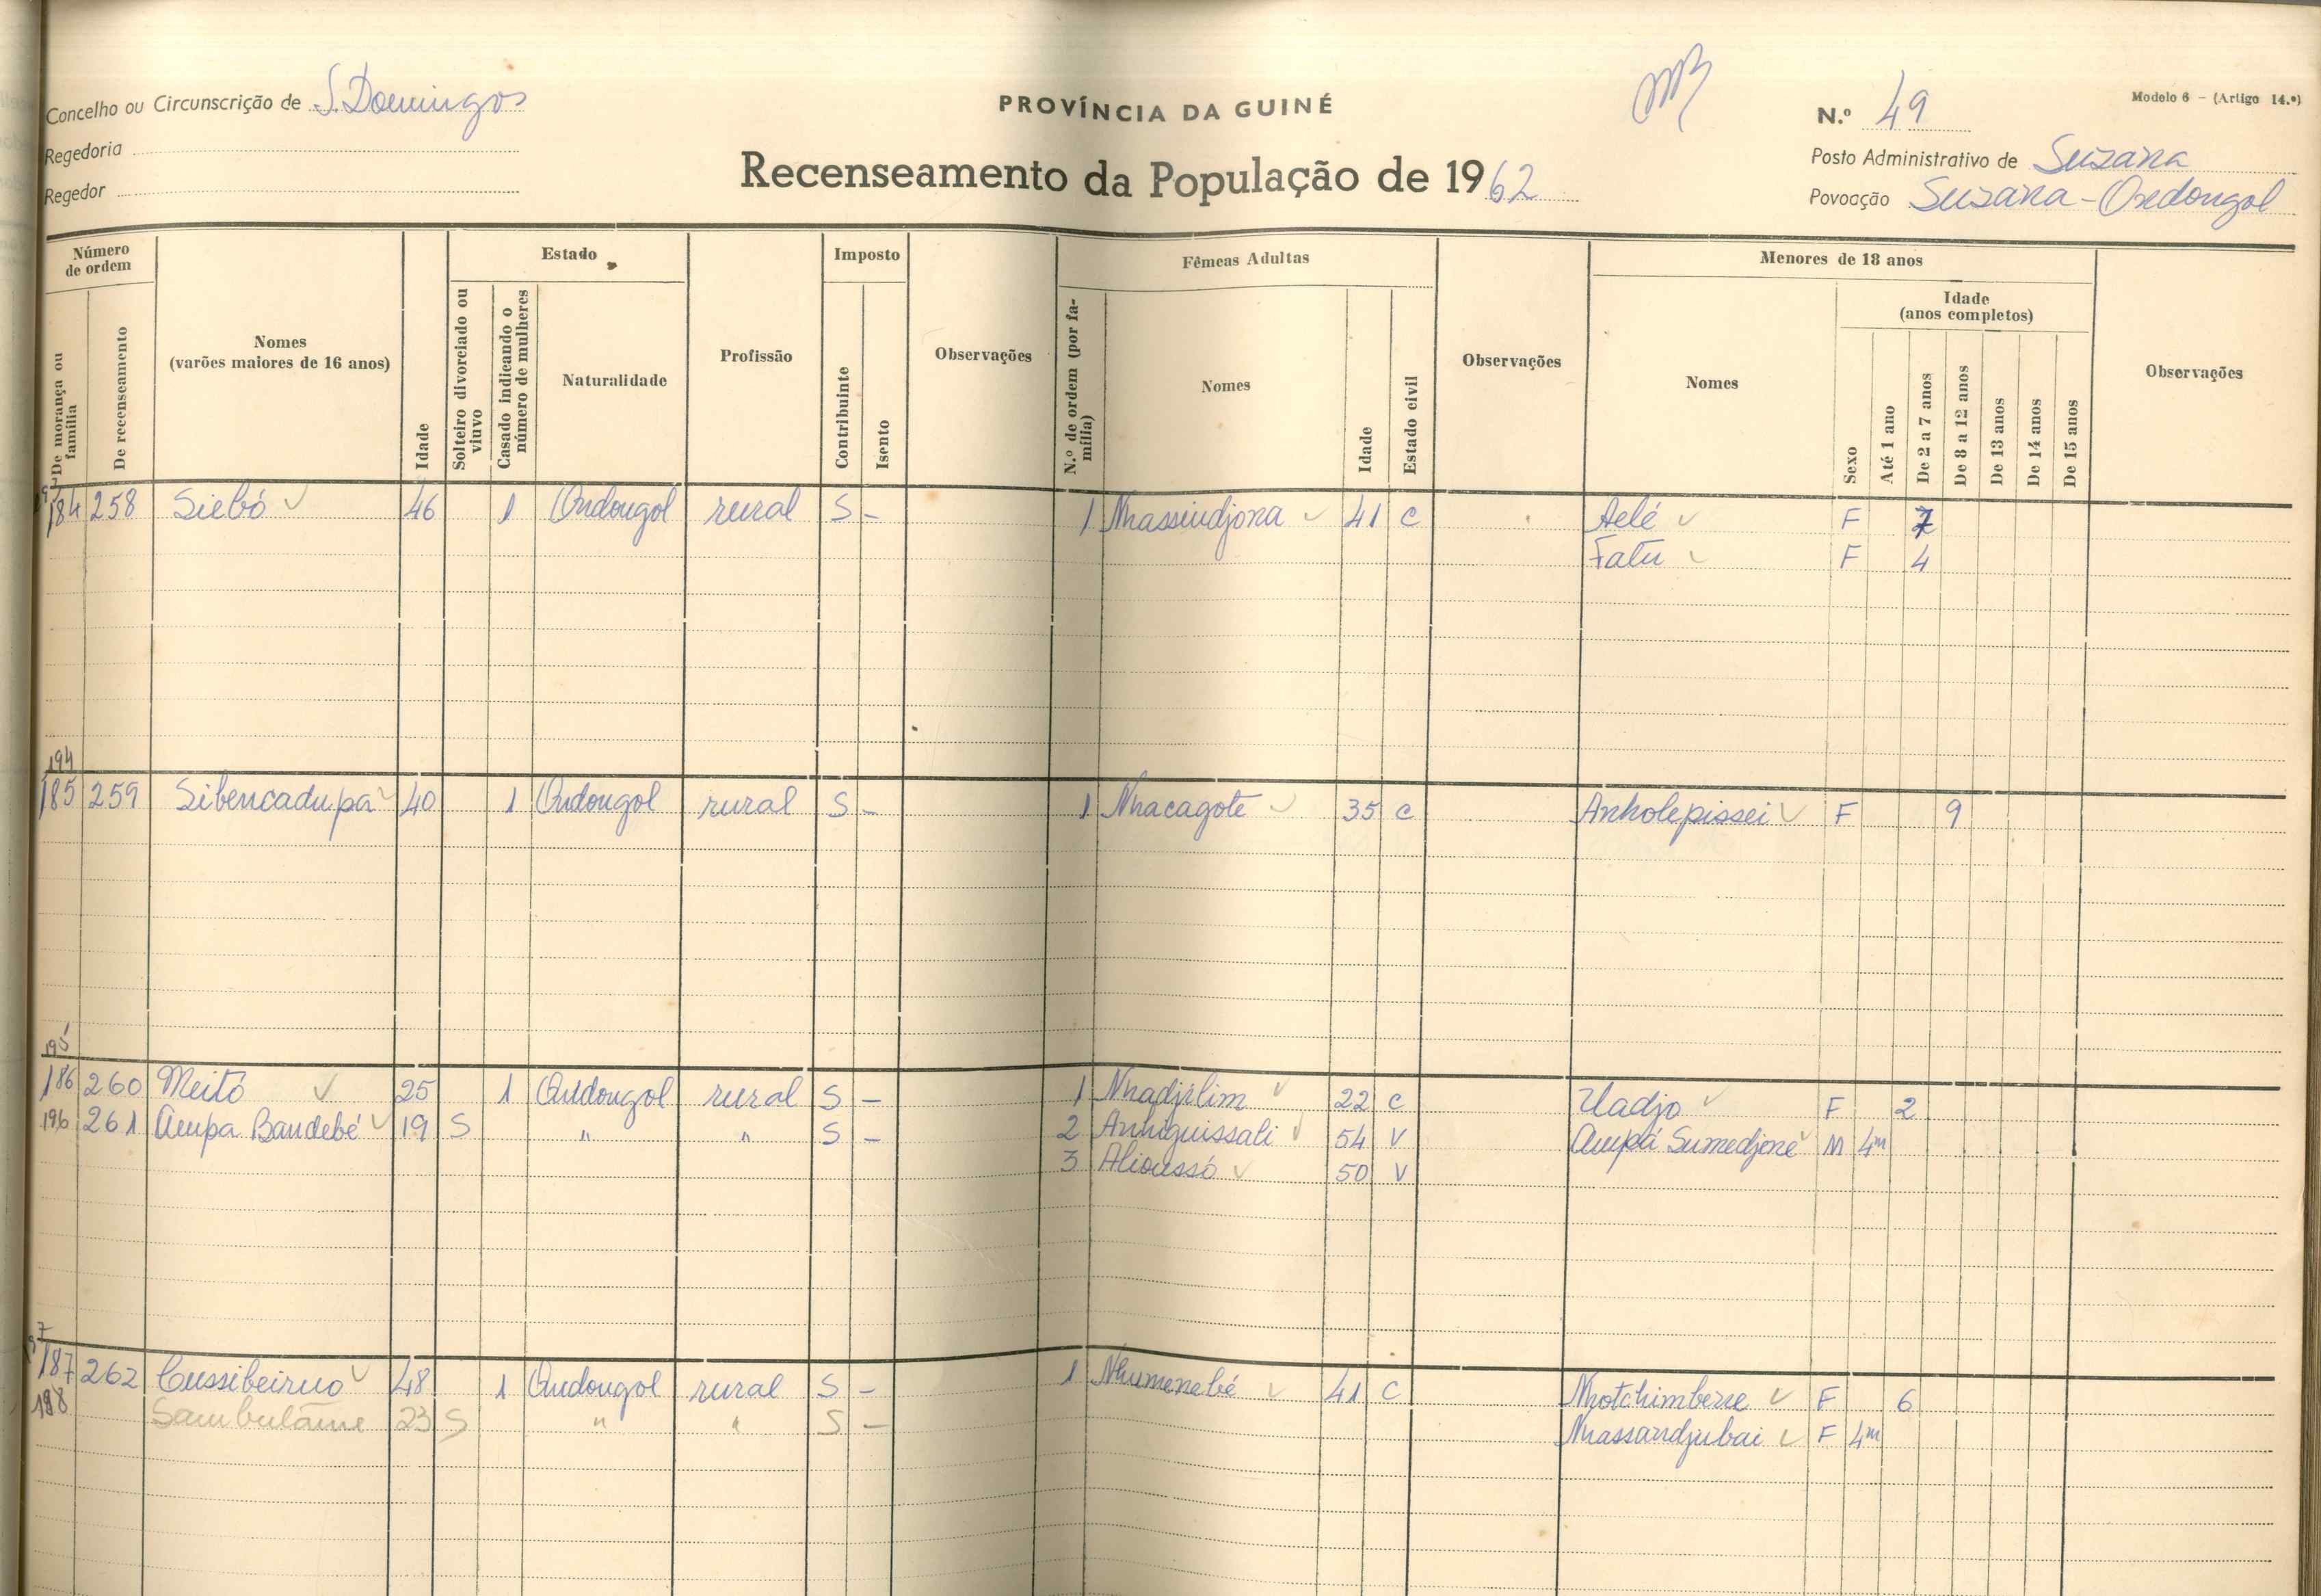 Concelho ou Circunscrição de S. Domingos
PROVÍNCIA DA GUINÉ
N.º 49
Modelo 6 - (Artigo 14.º)
Regedoria
Regedor
Recenseamento da População de 1962
Posto Administrativo de Suzana
Povoação Suzana - Ondongol
Número de ordem
Estado
Imposto
Fêmeas Adultas
Menores de 18 anos
De morança ou família
De recenseamento
Nomes (varões maiores de 16 anos)
Idade
Solteiro divorciado ou viuvo
Casado indicando o número de mulheres
Naturalidade
Profissão
Contribuinte
Isento
Observações
N.º de ordem (por família)
Nomes
Idade
Estado civil
Observações
Nomes
Sexo
Idade (anos completos)
Até 1 ano
De 2 a 7 anos
De 8 a 12 anos
De 13 anos
De 14 anos
De 15 anos
Observações
184 258 Siebó 46 1 Ondongol rural S - 1 Nhassindjona 41 C Aelé F 7
Fatu F 4
194
185 259 Sibencadupa 40 1 Ondongol rural S - 1 Nhacagote 35 C Anholepissei F 9
195
186 260 Meitó 25 1 Ondongol rural S - 1 Nhadjilim 22 C Uadjo F 2
196 261 Ampa Bandebé 19 S " " S - 2 Anhiguissali 54 V Ampá Sumedjoné M 4m
3 Alioussó 50 V
187 262 Cussibeiruo 48 1 Ondongol rural S - 1 Nhumenebé 41 C Nhotchimberre F 6
198 Sambulame 23 S " " S - Nhassandjubai F 4m